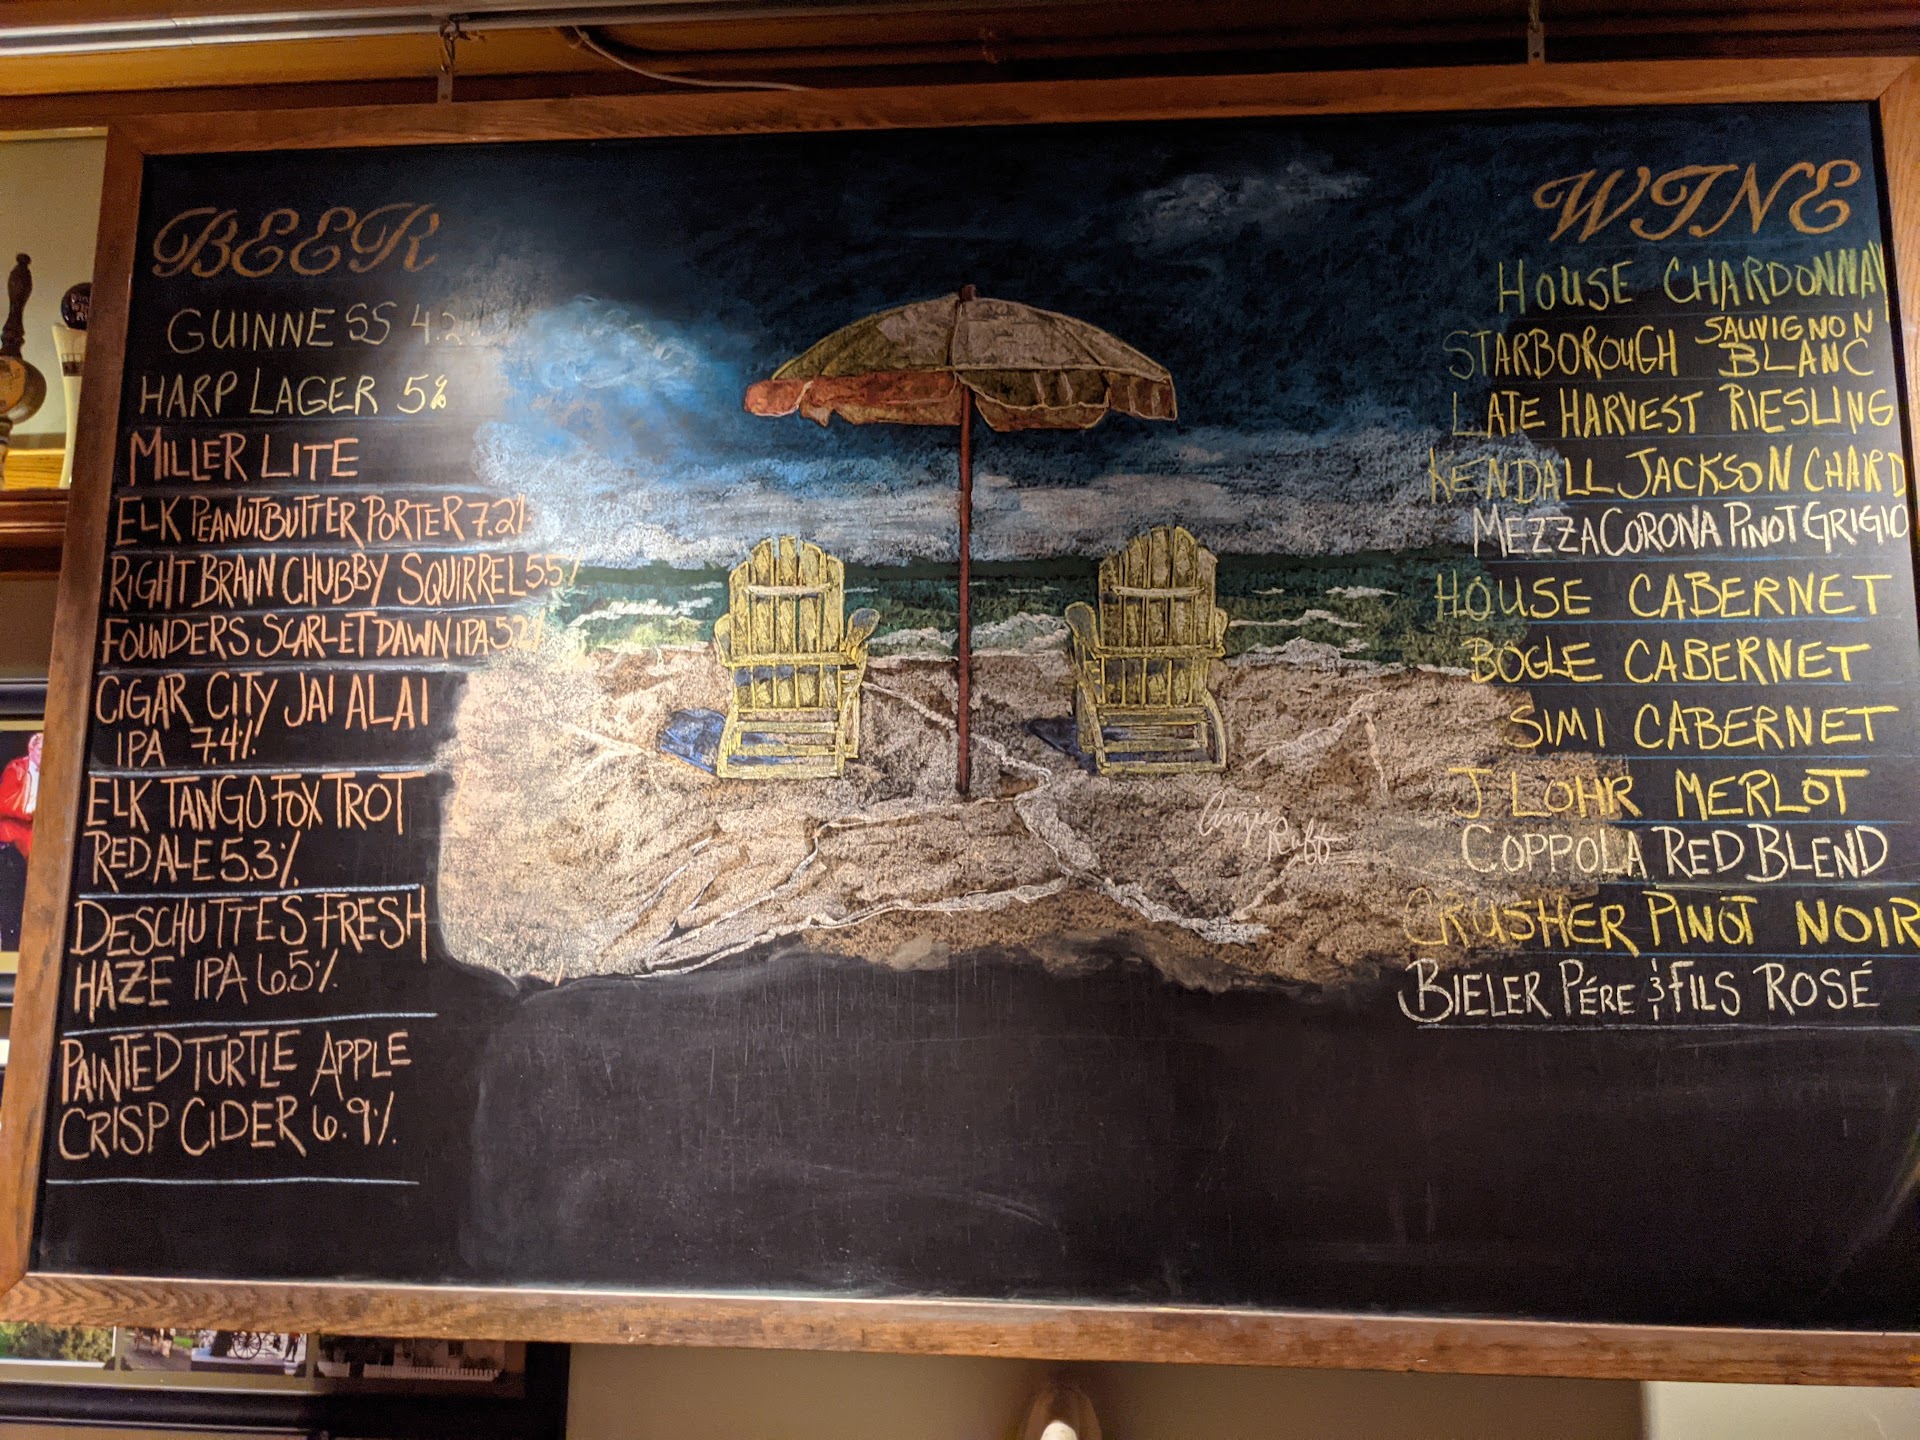 BEER
GUINNESS
HARP LAGER 5%
MILLER LITE
ELK PEANUT BUTTER PORTER 7.2%
RIGHT BRAIN CHUBBY SQUIRREL 5.5%
FOUNDERS SCARLET DAWN IPA 5.2%
CIGAR CITY JAI ALAI
IPA 7.4%
ELK TANGO FOX TROT
RED ALE 5.3%
DESCHUTTES FRESH
HAZE IPA 6.5%
PAINTED TURTLE APPLE
CRISP CIDER 6.9%
WINE
HOUSE CHARDONNAY
STARBOROUGH SAUVIGNON
BLANC
LATE HARVEST RIESLING
KENDALL JACKSON CHARD
MEZZA CORONA PINOT GRIGIO
HOUSE CABERNET
BOGLE CABERNET
SIMI CABERNET
J LOHR MERLOT
COPPOLA RED BLEND
CRUSHER PINOT NOIR
BIELER PÉRE & FILS ROSÉ
Angie